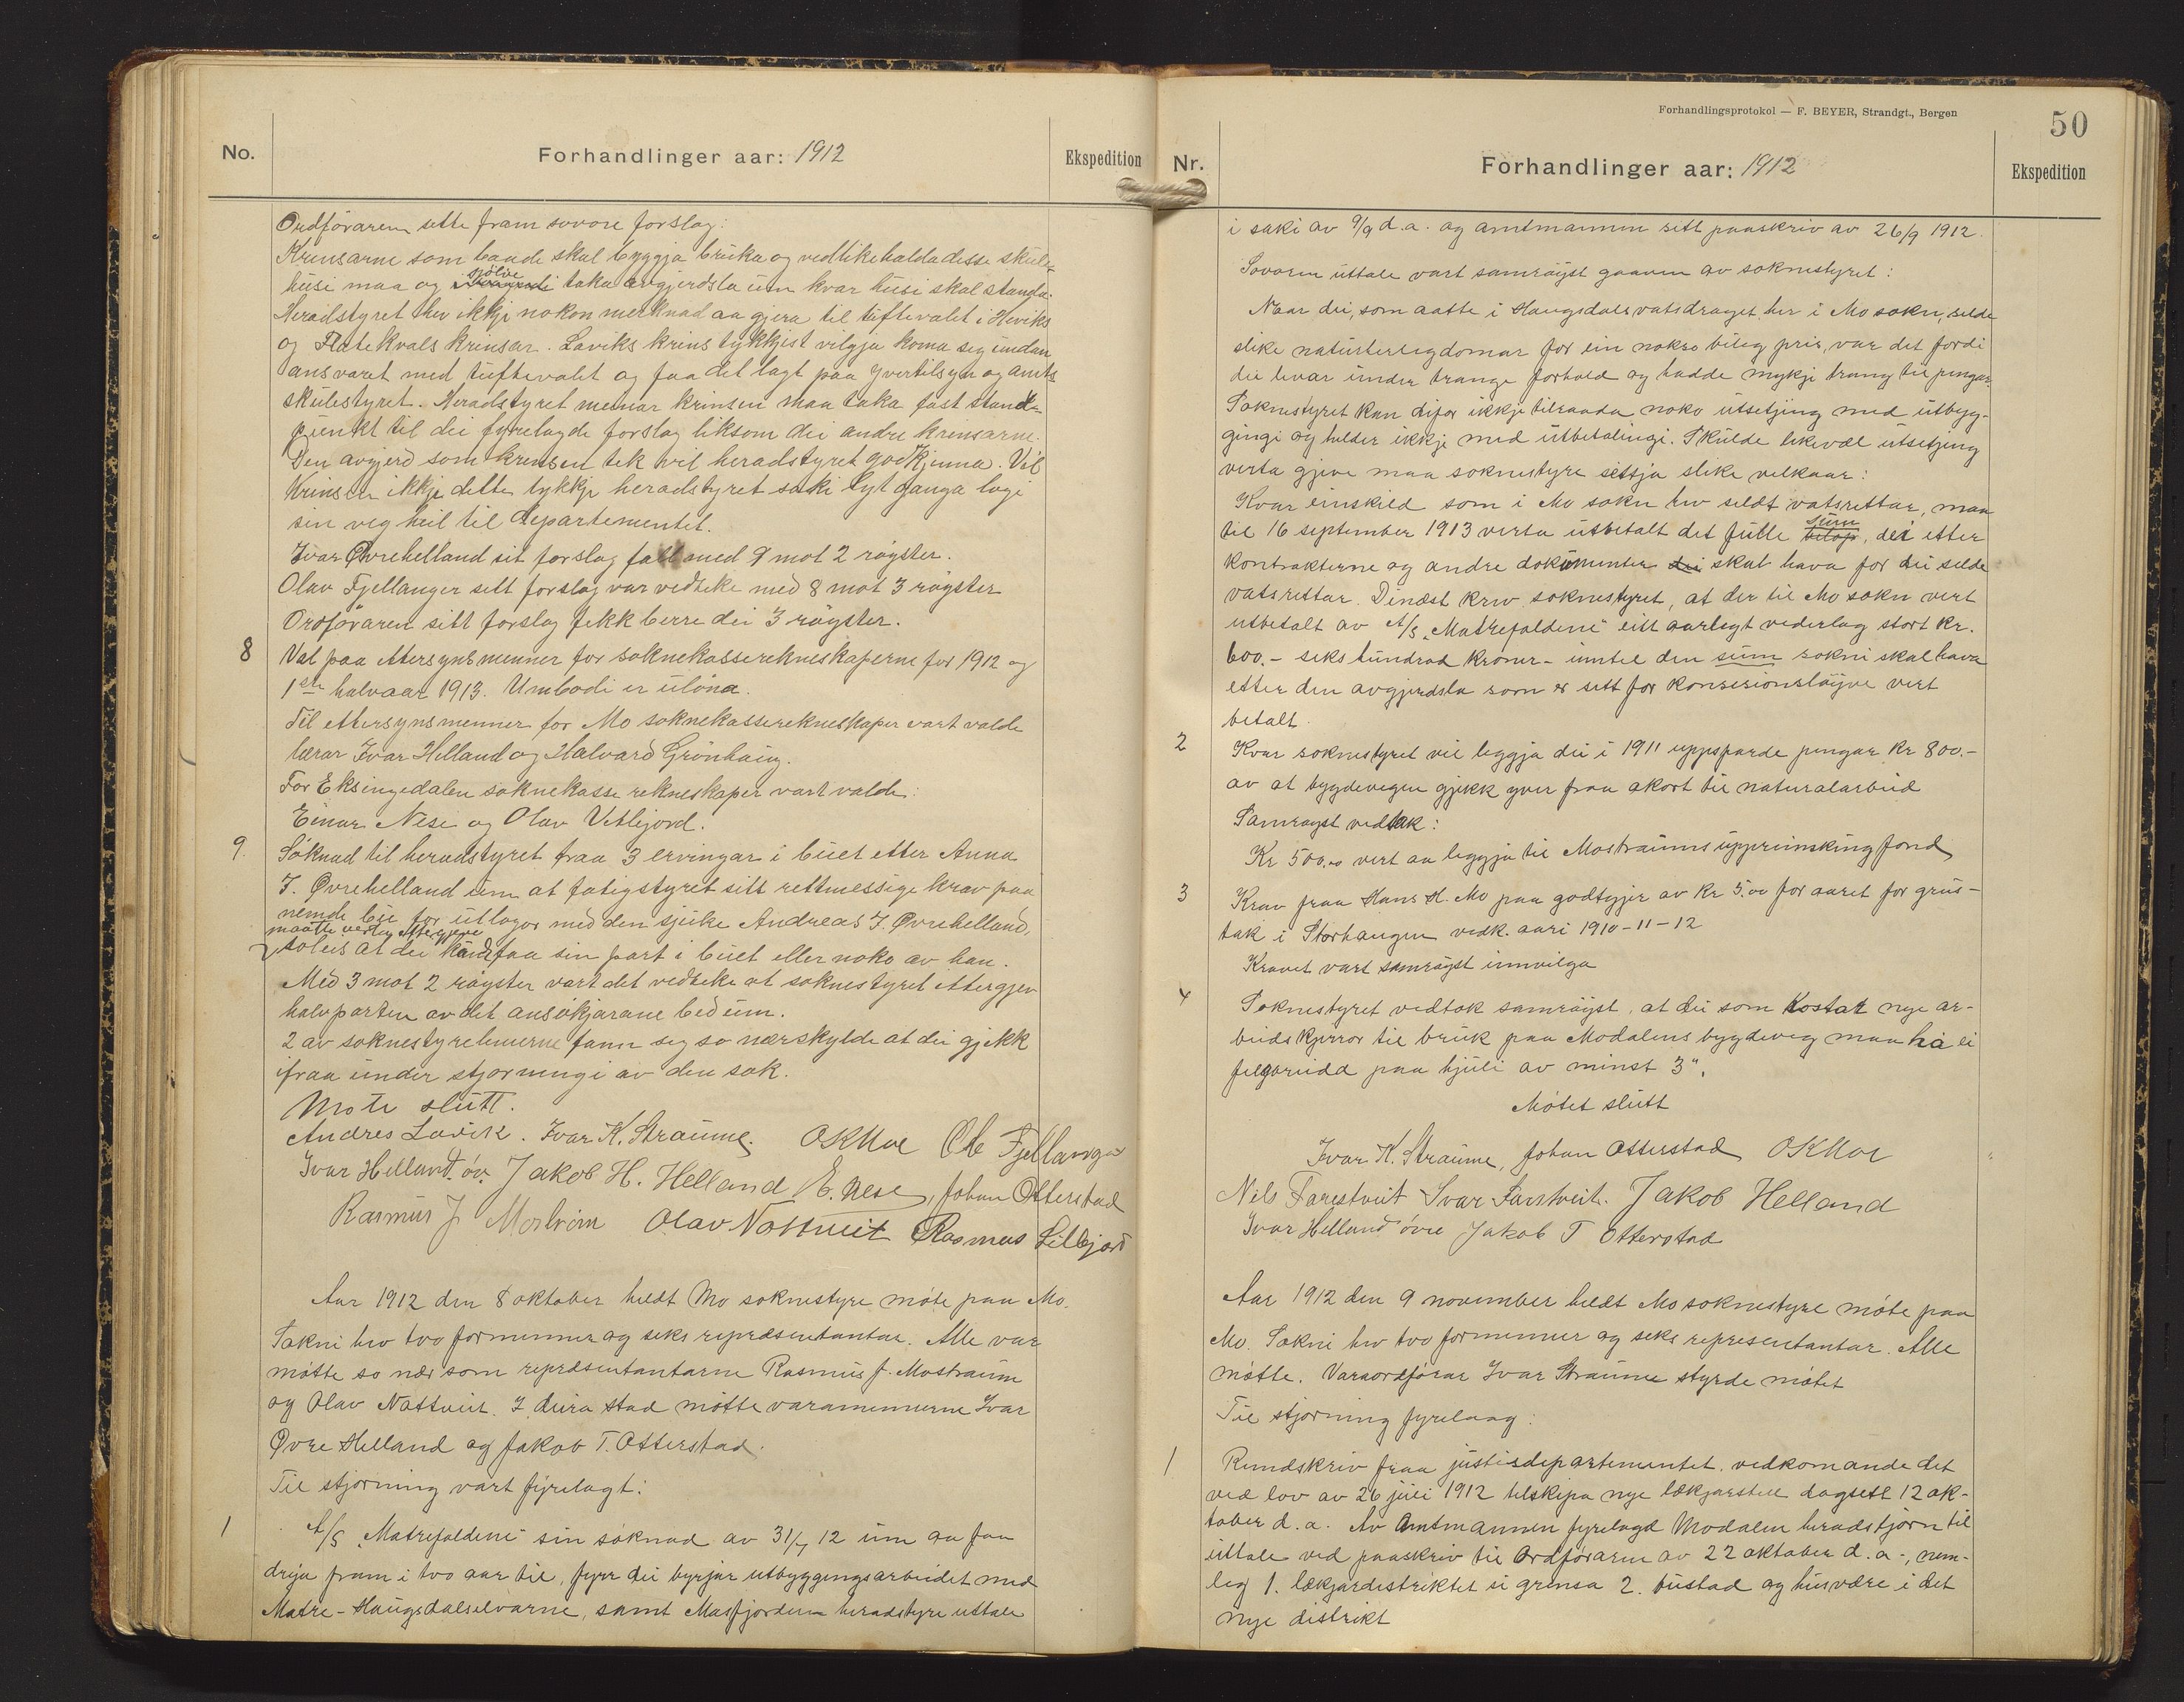 No.
Forhandlinger aar: 1912
Ekspedition
Ordföraren sette fram sovore forslag:
Krinsarne som baade skal byggja bruka og vedlikehalda desse skule-
husi maa og sjölve taka avgjerdsla um kvar husi skal standa.
Heradstyret hev ikkji nokon merknad aa gjera til tuftevalet i Heviks
og Flatekvals krinsar. Laviks krins tykkjist vilgja koma seg undan
ansvaret med tuftevalet og faa det lagt paa yvertilsyn og amts
skulestyret. Heradstyret meinar krinsen maa taka fast stand-
punkt til dei fyrelagde forslag liksom dei andre krinsarne.
Den avgjerd som krinsen tek vil heradstyret godkjenna. Vil
Krinsen ikkje dette tykkje heradstyret saki lyt ganga logi
sin veg heil til departementet.
Ivar Øvrehelland sit forslag fall med 9 mot 2 röyster.
Olav Fjellanger sett forslag var vedteke med 8 mot 3 röyster
Ordföraren sitt forslag fekk berre dei 3 röyster.
8 Val paa ettersynsmenner for soknekassereknekaperne for 1912 og
1ste halvaar 1913. Umbodi er ulöna.
Til ettersynsmenner for Mo soknekassereknskaper vart valde
lærar Ivar Helland og Halvard Grönhaug.
For Eksingedalen soknekasse rekneskaper vart valde:
Einar Nese og Olav Vetlejord.
9. Söknad til heradstyret fraa 3 ervingar i buet etter Anna
I. Øvrehelland um at fatigstyret sitt rettmessige krav paa
nemde bu for utlogor med den sjuke Andreas I. Øvrehelland,
maatte verta ettergjeve
soleis at dei kunde faa sin part i buet eller noko av han.
Med 3 mot 2 röyster vart det vedteke at soknestyret ettergjev
halvparten av det ansökjarane bed um.
2 av soknestyrelmerne fann seg so nærskylde at dei gjekk
ifraa under stjorningi av den sak.
Möte slutt.
Andres Lavik. Ivar K. Straume. OKMoe Ole Fjellanger
Ivar Helland. öv. Jakob H. Helland E. Nese, Johan Otterstad
Rasmus J Mostrøm Olav Nottveit Rasmus Lillejord
Aar 1912 den 8 oktober heldt Mo soknestyre möte paa Mo.
Sokni hev tvo formenner og seks repræsentantar. Alle var
mötte so nær som repræsentantarne Rasmus J. Mostraum
og Olav Nottveit. I deira stad mötte varamennerne Ivar
Øvre Helland og Jakob T. Otterstad.
Til stjorning vart fyrelagt:
1 A/S „Matrefaldene" sin söknad av 31/7 12 um aa faa
dryja fram i tvo aar til, fyrr dei byrjar utbyggingsarbeidet med
Matre-Haugsdalselvarne, samt Masfjorden heradstyre uttale
Forhandlingsprotokol — F. BEYER, Strandgt., Bergen
50
Nr.
Forhandlinger aar: 1912
Ekspedition
i saki av 9/9 d.a. og amtmannen sitt paaskriv av 26/9 1912.
Sovoren uttale vart samröyst gjeven av soknestyret:
Naar dei, som aatte i Haugsdalsvatsdraget her i Mo sokn, selde
slike naturherlegdomar for ein nokso bileg pris, var det fordi
dei levar under trange forhold og hadde mykje trang til pengar.
Soknestyret kan difor ikkje tilraada noko utsetjing med utbyg-
gingi og helder ikkje med utbetalingi. Skulde likevæl utsetjing
verta gjeve maa soknestyre setja slike velkaar:
Kvar einskild som i Mo sokn hev seldt vatsrettar, maa
til 16 september 1913 verta utbetalt det fulle sum, dei etter
kontrakterne og andre dokumenter skal hava for dei selde
vatsrettar. Dinæst krev soknestyret, at der til Mo sokn vert
utbetalt av A/S „Matrefaldene" eitt aarlegt vederlag stort kr.
600.- seks hundrad kroner - inntil den sum sokni skal hava
etter den avgjerdsla som er sett for konsesionslöyve vert
betalt.
2 Kvar soknestyret vil leggja dei i 1911 uppsparde pengar kr 800.-
av at bygdevegen gjekk yver fraa akort til naturalarbeid
Samröyst vedtak:
Kr 500.00 vert aa leggja til Mostraums upprensking fond
3 Krav fraa Hans H. Mo paa godtgjer av kr 5.00 for aaret for grus-
tak i Storhaugen vedk. aari 1910-11-12
Kravet vart samröyst innvilga
4 Soknestyret vedtok samröyst, at dei som kostar nye ar-
beidskjerror til bruk paa Modalens bygdeveg maa ha ei
felgbreidd paa hjuli av minst 3".
Mötet slutt
Ivar K. Straume, Johan Otterstad OKMoe
Nils Farestveit Ivar Farestveit. Jakob Helland
Ivar Helland övre Jakob T Otterstad
Aar 1912 den 9 november heldt Mo soknestyre möte paa
Mo. Sokni hev tvo formenner og seks representantar. Alle
mötte. Varaordförar Ivar Straume styrde mötet
Til stjorning fyrelaag:
1 Rundskriv fraa justisdepartementet. vedkomande det
ved lov av 26 juli 1912 tilskipa nye lækjarstell dagsett 12 ok-
tober d.a. Av Amtmannen fyrelagd Modalen heradstjorn til
uttale ved paaskriv til Ordföraren av 22 oktober d.a., nem-
leg 1. lækjardistriktet si grensa 2. bustad og husvære i det
nye distrikt